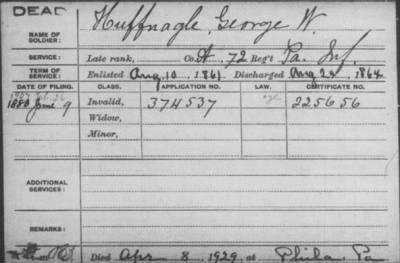 DEAD
NAME OF SOLDIER: Huffnagle, George W.
SERVICE: Late rank, Co. A, 72 Reg't Pa. Inf.
TERM OF SERVICE: Enlisted Aug. 10, 1861 Discharged Aug 24, 1864
DATE OF FILING. CLASS. APPLICATION NO. LAW. CERTIFICATE NO.
1880 June 9 Invalid, 374537 225656
Widow,
Minor,
ADDITIONAL SERVICES:
REMARKS:
Died Apr 8, 1929, at Phila. Pa